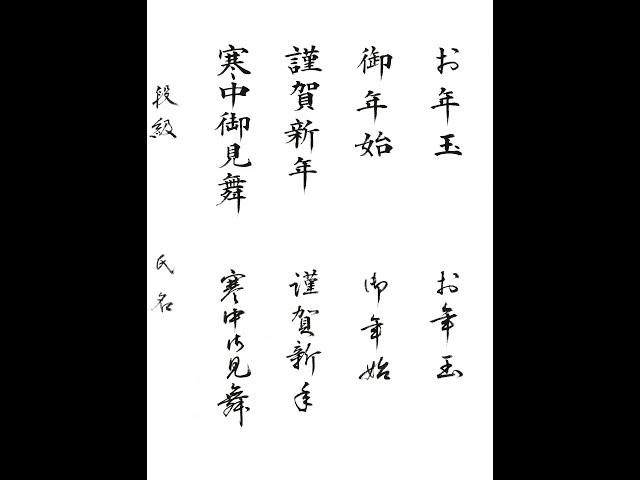 お年玉
御年始
謹賀新年
寒中御見舞
お年玉
御年始
謹賀新年
寒中御見舞
段級
氏名